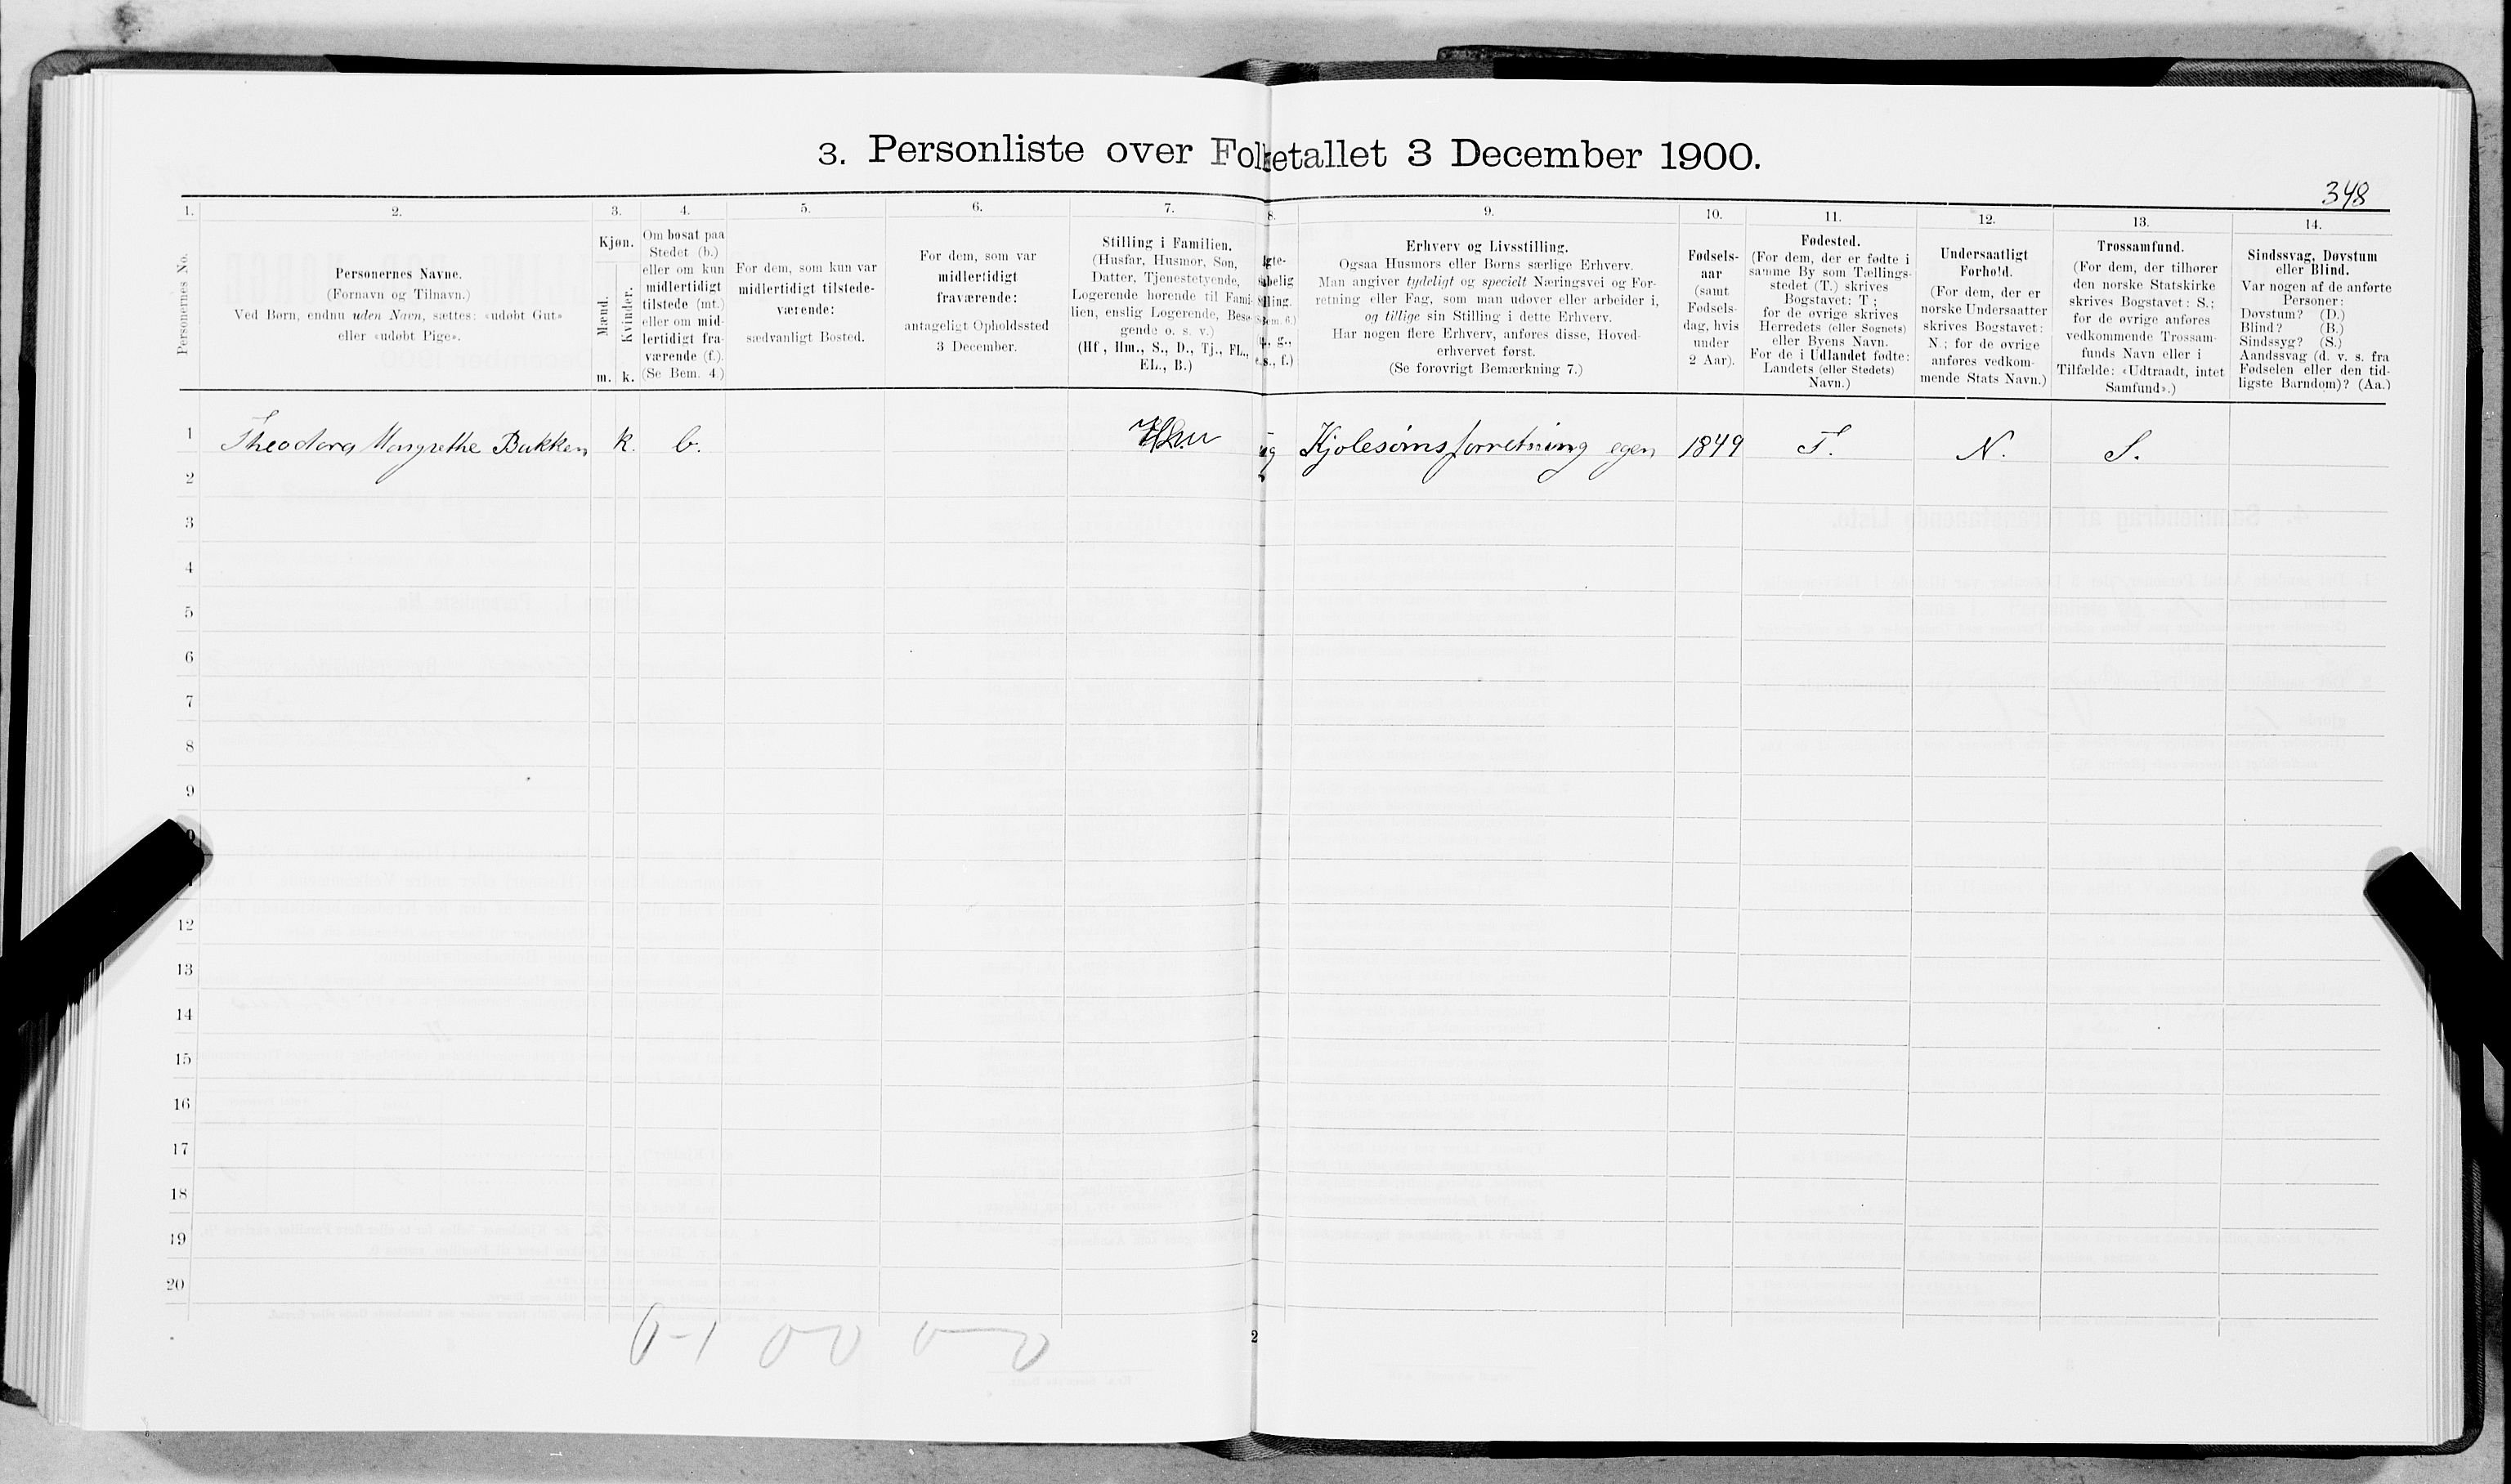 3. Personliste over Folketallet 3 December 1900.
348
1. 2. 3. 4. 5. 6. 7. 8. 9. 10. 11. 12. 13. 14.
Personernes No.
Personernes Navne.
(Fornavn og Tilnavn.)
Ved Børn, endnu uden Navn, sættes: «udøbt Gut»
eller «udøbt Pige».
Kjøn.
Mænd.
Kvinder.
m. k.
Om bosat paa
Stedet (b.)
eller om kun
midlertidigt
tilstede (mt.)
eller om mid-
lertidigt fra-
værende (f.).
(Se Bem. 4.)
For dem, som kun var
midlertidigt tilstede-
værende:
sædvanligt Bosted.
For dem, som var
midlertidigt
fraværende:
antageligt Opholdssted
3 December.
Stilling i Familien.
(Husfar, Husmor, Søn,
Datter, Tjenestetyende,
Logerende hørende til Fami-
lien, enslig Logerende, Besø-
gende o. s. v.)
(Hf., Hm., S., D., Tj., FL.,
EL., B.)
gte-
belig
lling.
Bem. 6.)
g.,
e.s., f.)
Erhverv og Livsstilling.
Ogsaa Husmors eller Børns særlige Erhverv.
Man angiver tydeligt og specielt Næringsvei og For-
retning eller Fag, som man udøver eller arbeider i,
og tillige sin Stilling i dette Erhverv.
Har nogen flere Erhverv, anføres disse, Hoved-
erhvervet først.
(Se forøvrigt Bemærkning 7.)
Fødsels-
aar
(samt
Fødsels-
dag, hvis
under
2 Aar).
Fødested.
(For dem, der er fødte i
samme By som Tællings-
stedet (T.) skrives
Bogstavet: T;
for de øvrige skrives
Herredets (eller Sognets)
eller Byens Navn.
For de i Udlandet fødte:
Landets (eller Stedets)
Navn.)
Undersaatligt
Forhold.
(For dem, der er
norske Undersaatter
skrives Bogstavet:
N.; for de øvrige
anføres vedkom-
mende Stats Navn.)
Trossamfund.
(For dem, der tilhører
den norske Statskirke
skrives Bogstavet: S.;
for de øvrige anføres
vedkommende Trossam-
funds Navn eller i
Tilfælde: «Udtraadt, intet
Samfund».)
Sindssvag, Døvstum
eller Blind.
Var nogen af de anførte
Personer:
Døvstum? (D.)
Blind? (B.)
Sindssyg? (S.)
Aandssvag (d. v. s. fra
Fødselen eller den tid-
ligste Barndom)? (Aa.)
1 Theodora Margrethe Bakken k. b. ug Kjolesømsforretning egen 1849 T. N. S.
2
3
4
5
6
7
8
9
12
13
14
15
16
17
18
19
20
0-1 00 0-0
2